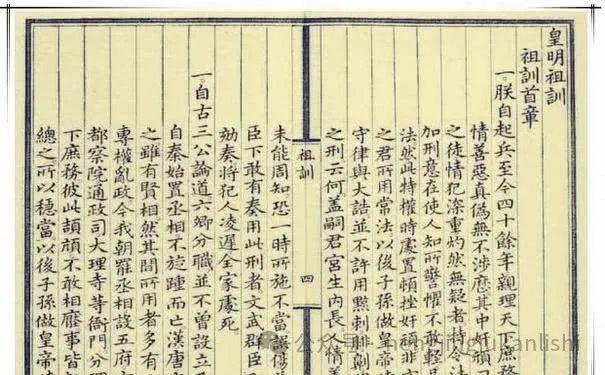 皇明祖訓
祖訓首章
一。朕自起兵至今四十餘年親理天下庶務
情善惡真偽無不涉歷其中奸頑刁
之徒情犯深重灼然無疑者特令法
加刑意在使人知所警懼不敢輕易
法然此特權時處置頓挫奸頑非守
之君所用常法以後子孫做皇帝時
守律與大誥並不許用黥刺剕劓
之刑云何蓋嗣君宮生內長人情善
祖訓
四
未能周知恐一時所施不當誤傷
臣下敢有奏用此刑者文武群臣
劾奏將犯人凌遲全家處死。
一。自古三公論道六卿分職並不曾設立丞
自秦始置丞相不旋踵而亡漢唐宋
之雖有賢相然其間所用者多有
專權亂政今我朝罷丞相設五府六
都察院通政司大理寺等衙門分理
下庶務彼此頡頏不敢相壓事皆
總之所以穩當以後子孫做皇帝時
公众号